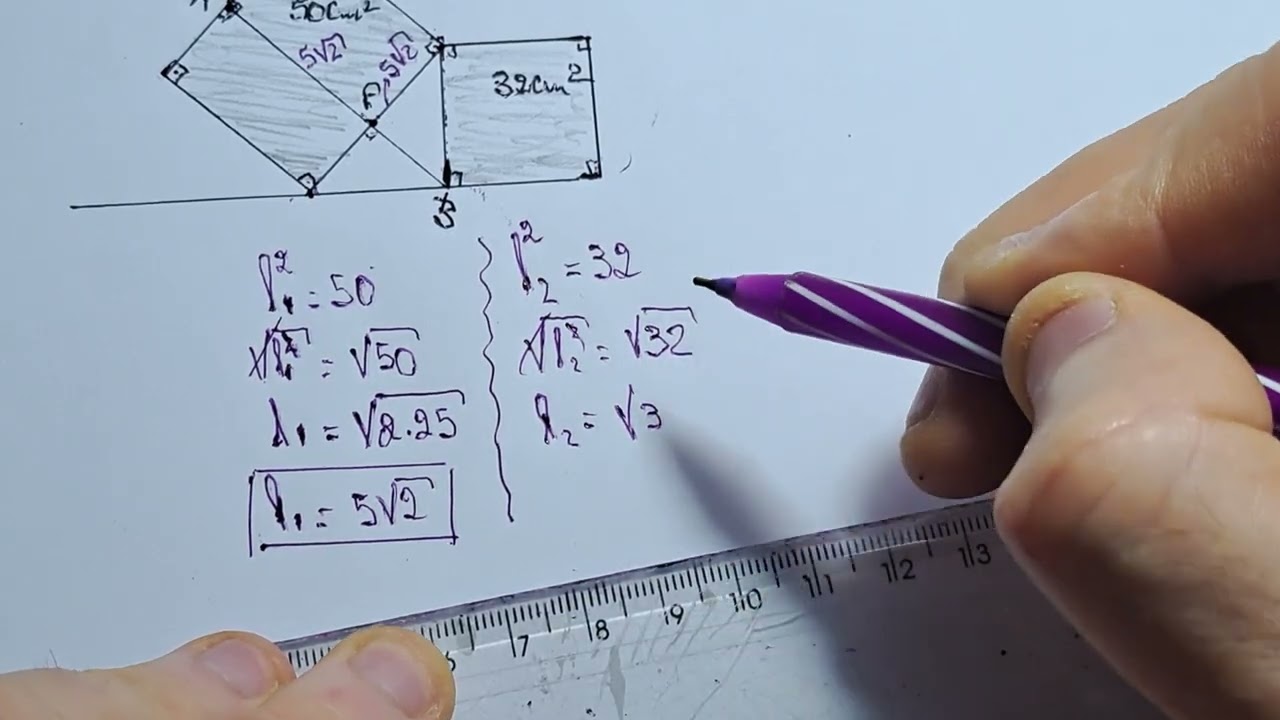 50cm²
5√2
5√2
F
32cm²
B
l₁² = 50
√l₁² = √50
l₁ = √2.25
l₁ = 5√2
l₂² = 32
√l₂² = √32
l₂ = √3
7 8 9 10 11 12 13